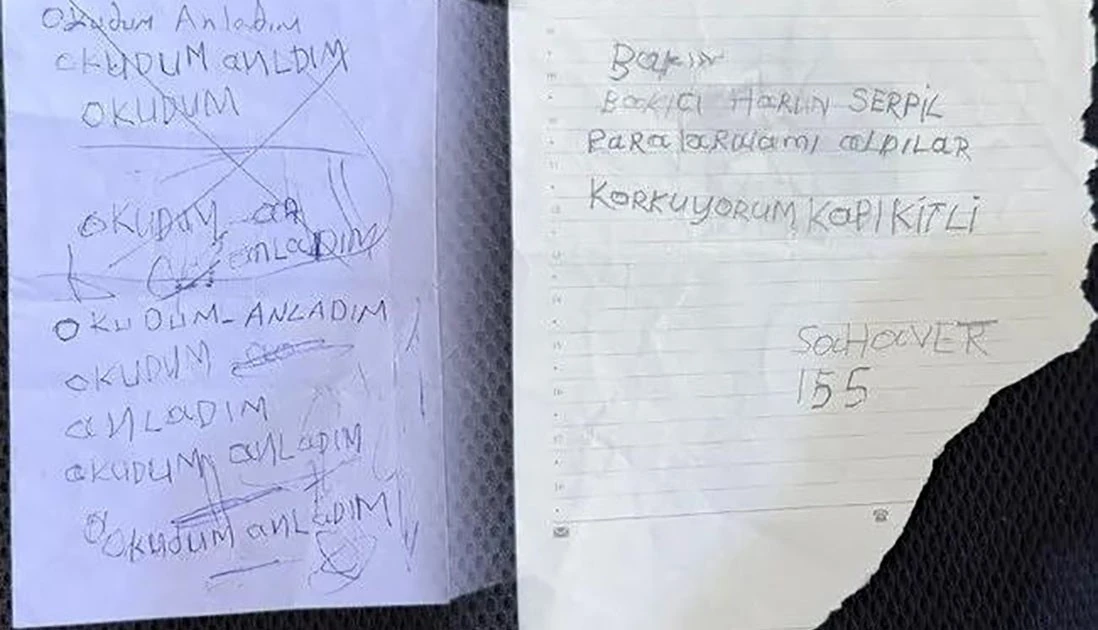 Okudum Anladım
OKUDUM aNLDIM
OKUDUM
OKUDUM
aNLaDIM
OKUDUM-ANLADIM
OKUDUM
aNLaDIM
OKUDUM aNLaDIM
OKUduM aNLaDIM
Bakın
BakICI HARUN SERPİL
PaRalaRımı alDILAR
KORKUYORUM KAPI KİTLİ
SaHaVER
155